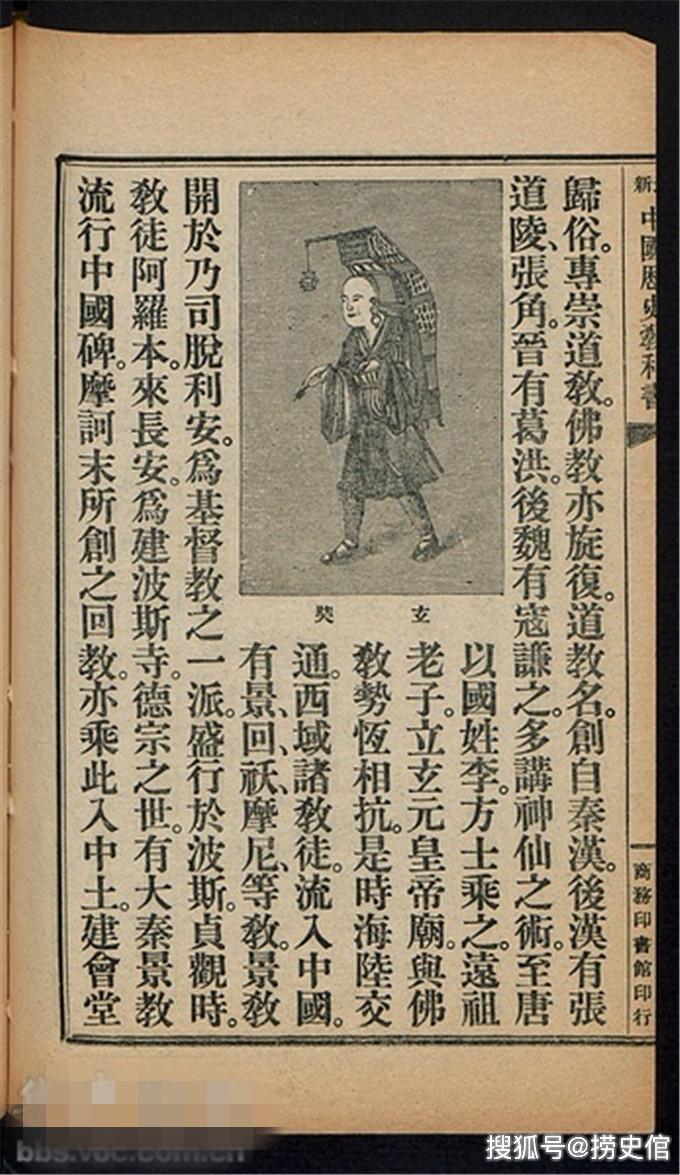 新
中國歷史教科書
商務印書館印行
歸俗。專崇道敎。佛敎亦旋復。道敎名。創自秦漢。後漢有張
道陵、張角。晉有葛洪。後魏有寇謙之。多講神仙之術。至唐
以國姓李。方士乘之。遠祖
老子。立玄元皇帝廟。與佛
敎勢恆相抗。是時海陸交
通。西域諸敎徒。流入中國。
有景、回、祆、摩尼、等敎。景敎
玄奘
開於乃司脫利安。爲基督敎之一派。盛行於波斯。貞觀時。
敎徒阿羅本。來長安。爲建波斯寺。德宗之世。有大秦景敎
流行中國碑。摩訶末所創之回敎。亦乘此入中土。建會堂
bbs.voc.com.cn
搜狐号@捞史馆